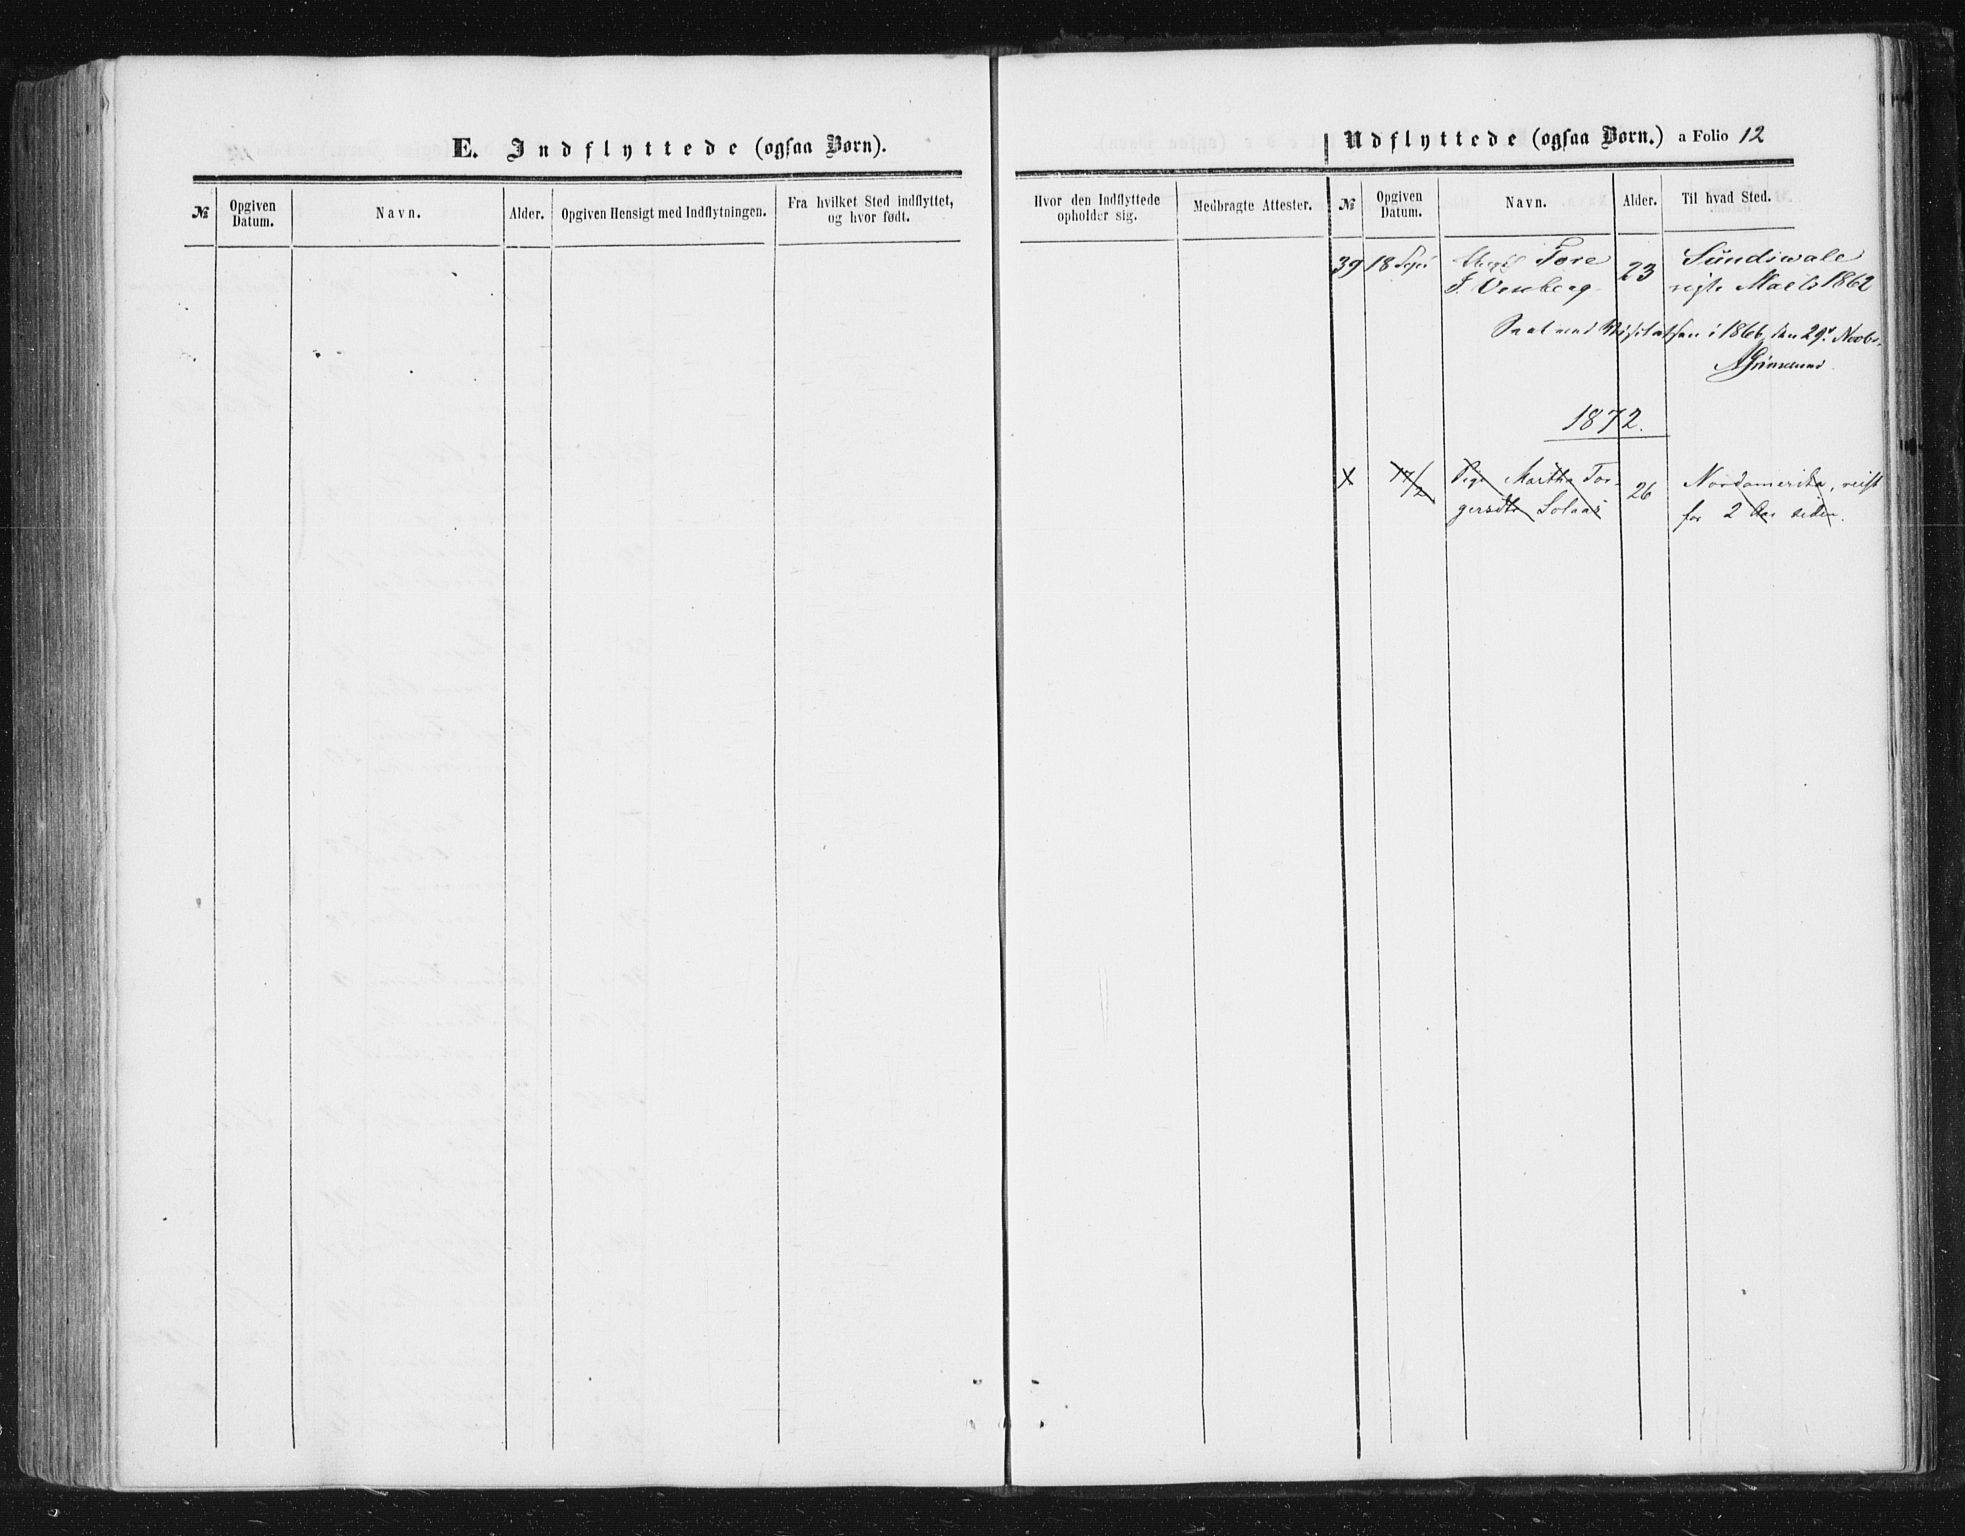 E. Indflyttede (ogsaa Børn).
Udflyttede (ogsaa Børn.) a Folio 12
№ Opgiven Datum. Navn. Alder. Opgiven Hensigt med Indflytningen. Fra hvilket Sted indflyttet, og hvor født.
Hvor den Indflyttede opholder sig. Medbragte Attester. № Opgiven Datum. Navn. Alder. Til hvad Sted.
39 18 Tore 23 Sundswale
J. 1862
i 1866, den 29. Novbr.
1872.
X 17/2 Pige Martha Tor- 26 Nordamerika, reist
gersdtr Solaas for 2 Aar siden.